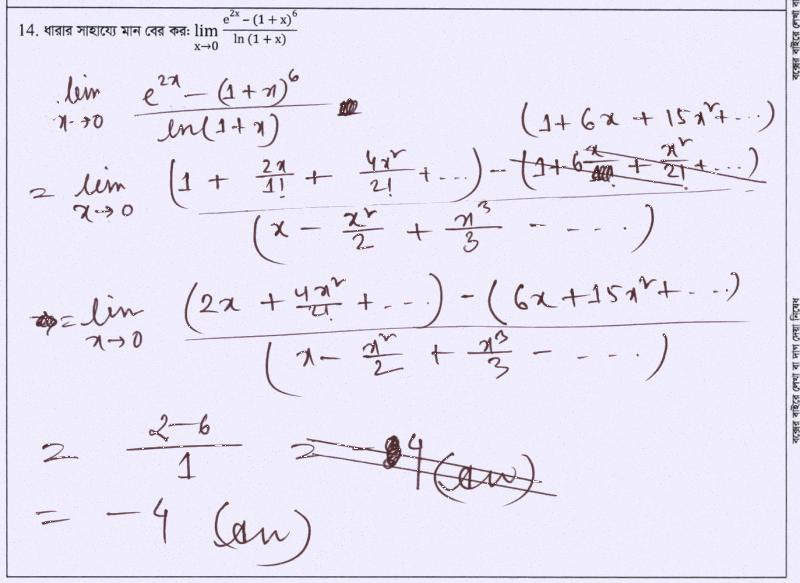 14. ধারার সাহায্যে মান বের কর: lim x→0 (e^2x – (1 + x)^6) / (ln (1 + x))
lim x→0 (e^2x – (1+x)^6) / (ln(1+x))
(1 + 6x + 15x² + ...)
= lim x→0 ((1 + 2x/1! + 4x²/2! + ...) – (1 + 6x + x²/2! + ...)) / (x – x²/2 + x³/3 - ....)
= lim x→0 ((2x + 4x²/2! + ...) – (6x + 15x² + ...)) / (x – x²/2 + x³/3 – ....)
= (2–6)/1 = –4 (an)
= –4 (an)
বক্সের বাইরে লেখা বা দাগ দেয়া নিষেধ
বক্সের বাইরে লেখা বা